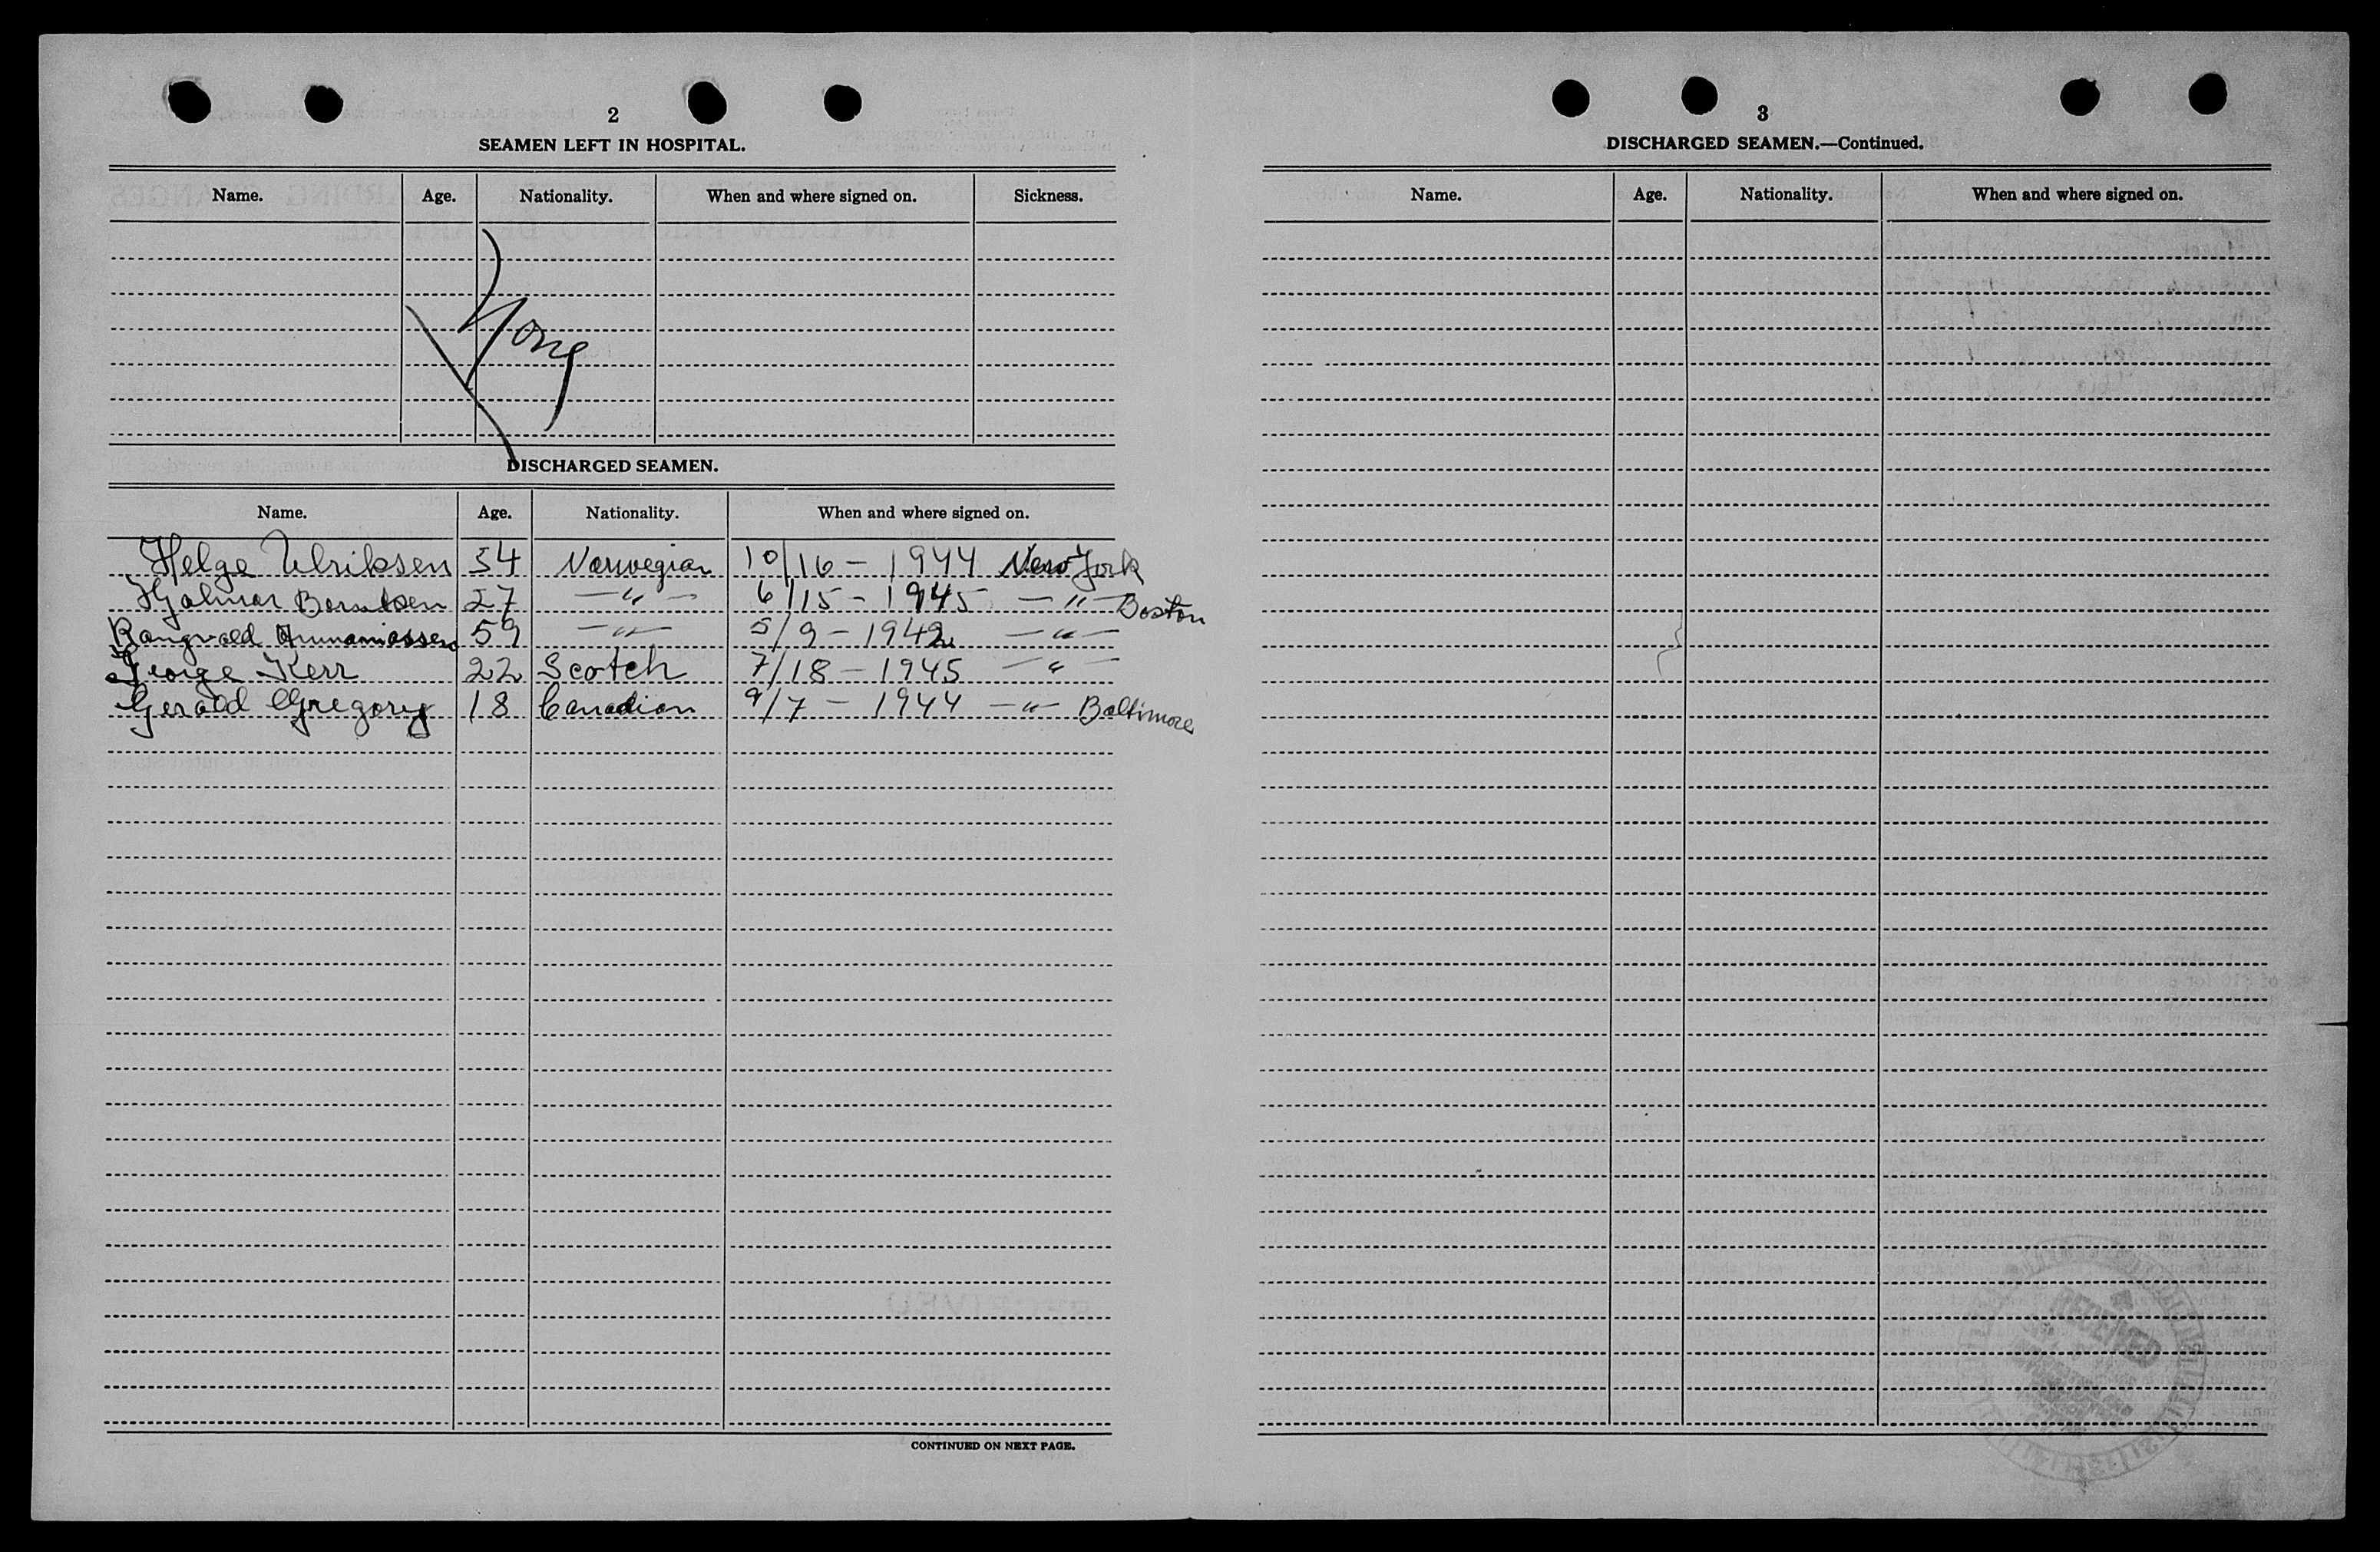 2
SEAMEN LEFT IN HOSPITAL.
Name. Age. Nationality. When and where signed on. Sickness.
None
DISCHARGED SEAMEN.
Name. Age. Nationality. When and where signed on.
Helge Ulriksen 54 Norwegian 10/16 - 1944 New York
Hjalmar Berntsen 27 — " — 6/15 - 1945 — " — Boston
Rangvald 59 — " — 5/9 - 1942 — " —
George Kerr 22 Scotch 7/18 - 1945 — " —
Gerald Gregory 18 Canadian 9/7 - 1944 — " — Baltimore
CONTINUED ON NEXT PAGE.
3
DISCHARGED SEAMEN.—Continued.
Name. Age. Nationality. When and where signed on.
RECEIVED